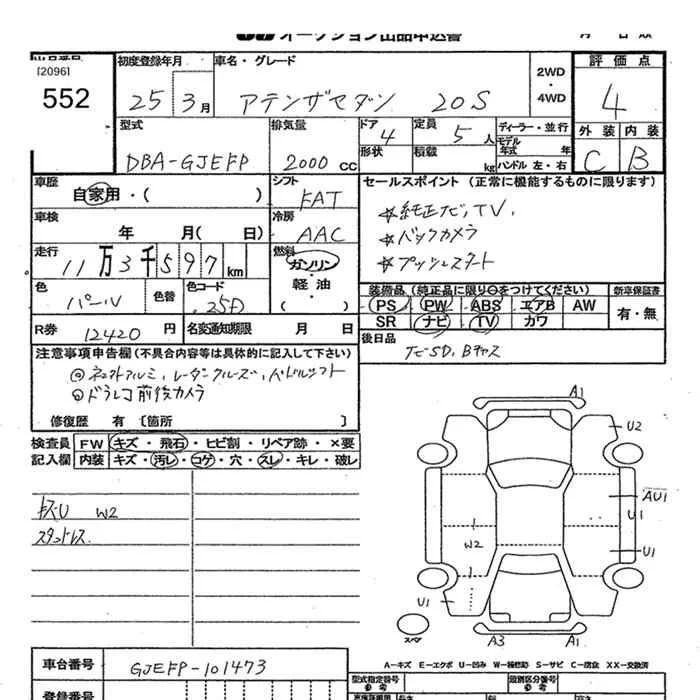 オークション出品申込書 月 日 版
出品番号 [2096] 552
初度登録年月 25 3月
車名・グレード アテンザセダン 20S
2WD ・ 4WD
評価点 4
外装 C 内装 B
型式 DBA-GJEFP
排気量 2000 CC
ドア 4 定員 5 人
形状 積載 kg
ディーラー・並行
モデル年式 年
ハンドル 左・右
車歴 自家用・( )
シフト FAT
セールスポイント (正常に機能するものに限ります)
☆純正ナビ,TV,
☆バックカメラ
☆プッシュスタート
車検 年 月( 日)
冷房 AAC
走行 11万3千597km
燃料 ガソリン・軽油・( )
色 パール 色替 色コード 25D
装備品 (純正品に限り○をつけてください) 新車保証書
PS PW ABS エアB AW 有・無
SR ナビ TV カワ
R券 12420円 名変通知期限 月 日
後日品
ナビSD,Bチャス
注意事項申告欄(不具合内容等は具体的に記入して下さい)
ドラレコ前後カメラ
修復歴 有 〔箇所 〕
検査員 FW キズ・飛石・ヒビ割・リペア跡・×要
記入欄 内装 キズ・汚レ・コゲ・穴・スレ・キレ・破レ
キズU W2
スタッドレス
A1
U2
AU1
U1
W2
U1
U1
スペア
A3 A1
車台番号 GJEFP-101473
A−キズ E−エクボ U−凹み W−補修跡 S−サビ C−腐食 XX−交換済
登録番号
型式指定番号 参考
類別区分番号 参考